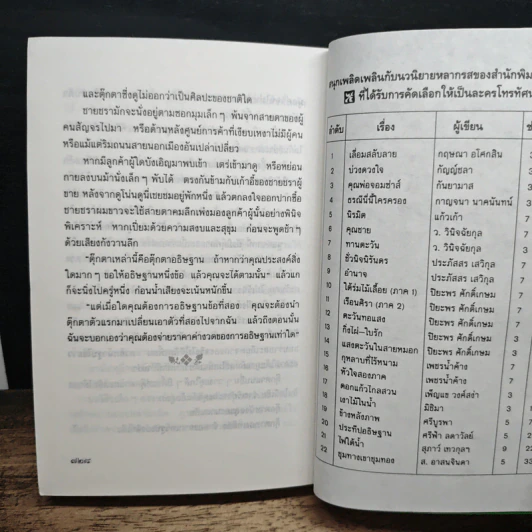 และตุ๊กตาสิ่งดูไม่ออกว่าเป็นศิลปะของชาติใด
ชายชรามักจะนั่งอยู่ตามซอกมุมเล็กๆ พ้นจากสายตาของผู้
คนสัญจรไปมา หรือด้านหลังศูนย์การค้าที่เงียบเหงาไม่มีผู้คน
หรือแม้แต่ริมถนนสายนอกเมืองอันเปล่าเปลี่ยว
หากมีลูกค้าผู้ใดบังเอิญมาพบเข้า เตร่เข้ามาดู หรือหย่อน
กายลงบนม้านั่งเล็กๆ พับได้ ตรงกันข้ามกับเก้าอี้ของชายชราผู้
ขาย หลังจากดูโน่นดูนี่เชยชมอยู่พักหนึ่ง แล้วตกลงใจออกปากซื้อ
ชายชราผมขาวจะใช้สายตาคมลึกเพ่งมองลูกค้าผู้นั้นอย่างพินิจ
พิเคราะห์ หากเปี่ยมด้วยความสงบและสุขุม ก่อนจะพูดช้าๆ
ด้วยเสียงกังวานลึก
"ตุ๊กตาเหล่านี้คือตุ๊กตาอธิษฐาน ถ้าหากว่าคุณประสงค์สิ่ง
ใดมากๆ ขอให้อธิษฐานหนึ่งข้อ แล้วคุณจะได้ตามนั้น" แล้วแก
ก็จะนิ่งไปครู่หนึ่ง ก่อนน้ำเสียงจะเน้นหนักขึ้น
"แต่เมื่อใดคุณต้องการอธิษฐานข้อที่สอง คุณจะต้องนำ
ตุ๊กตาตัวแรกมาเปลี่ยนเอาตัวที่สองไปจากฉัน แล้วถึงตอนนั้น
ฉันจะบอกเองว่าคุณต้องจ่ายราคาค่างวดของการอธิษฐานเท่าใด"
สนุกเพลิดเพลินกับนวนิยายหลากรสของสำนักพิม
ที่ได้รับการคัดเลือกให้เป็นละครโทรทัศน
ลำดับ เรื่อง ผู้เขียน
1 เลื่อมสลับลาย กฤษณา อโศกสิน 3
2 บ่วงดวงใจ กัญญ์ชลา 3
3 คุณพ่อจอมซ่าส์ กันยามาส 3
4 ธรณีนี้ใครครอง กาญจนา นาคนันทน์ 3
5 นิรมิต แก้วเก้า 7
6 คุณชาย ว. วินิจฉัยกุล
7 ทานตะวัน ว. วินิจฉัยกุล
8 ชั่วนิจนิรันดร ประภัสสร เสวิกุล
9 อำนาจ ประภัสสร เสวิกุล
10 ใต้ร่มไม้เลื้อย (ภาค 1) ปิยะพร ศักดิ์เกษม
11 เรือนศิรา (ภาค 2) ปิยะพร ศักดิ์เกษม
12 ตะวันทอแสง ปิยะพร ศักดิ์เกษม
13 กิ่งไผ่-ใบรัก ปิยะพร ศักดิ์เกษม
14 แสงตะวันในสายหมอก ปิยะพร ศักดิ์เกษม
15 กุหลาบที่ไร้หนาม เพชรน้ำค้าง
16 หัวใจสองภาค เพชรน้ำค้าง
17 ดอกแก้วไกลสวน เพ็ญแข วงศ์สง่า
18 เงาไม้ในน้ำ มิธิมา
19 ข้างหลังภาพ ศรีบูรพา
20 ประทีปอธิษฐาน ศรีฟ้า ลดาวัลย์
21 ไฟใต้น้ำ สุภาว์ เทวกุลฯ
22 ขุมทางเขาขุมทอง ส. อาสนจินดา 5